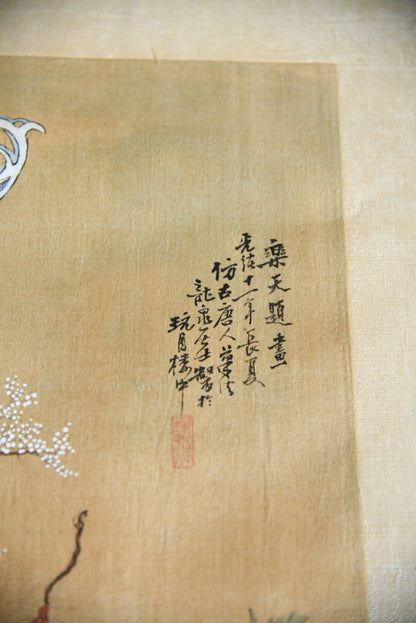 樂天題畫
光緒十一年長夏
仿古唐人筆法
龍泉居士製於
玩月樓中